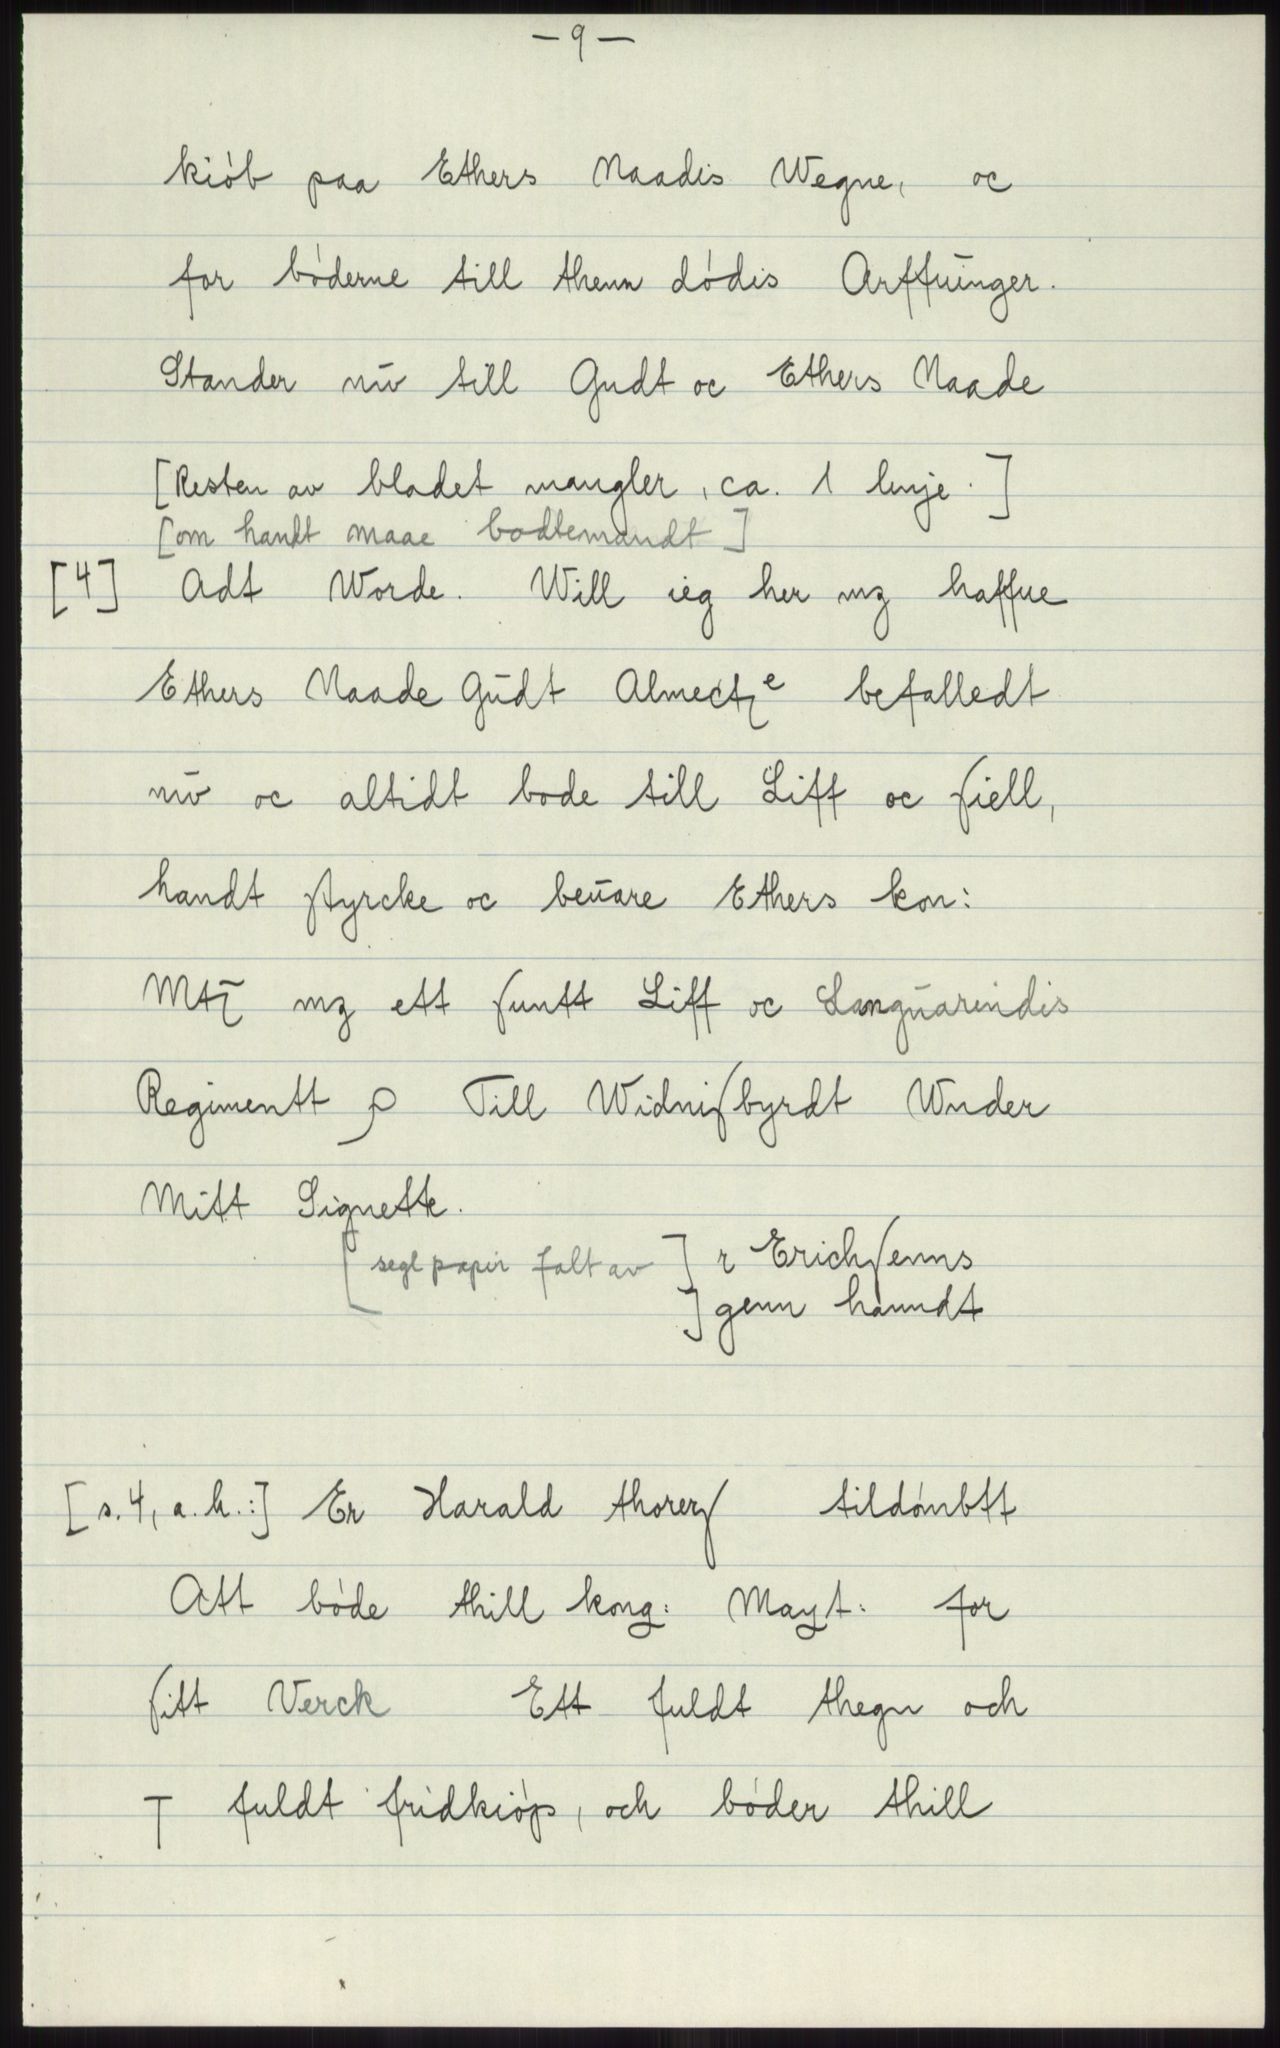 — 9 —
kiób paa Ethers Naadis Wegne, oc
for bóderne till thenn dódis Arffūinger.
Stander nūv till Gudt oc Ethers Naade
[Resten av bladet mangler, ca. 1 linje.]
[om handt maae bodtemandt]
[4] Adt Worde. Will ieg her mz haffue
Ethers Naade Gūdt Almectze befalledt
nūv oc altidt bode till Liff oc ſiell,
handt ſtyrcke oc beūare Ethers kon:
Mtz mz ett ſuntt Liff oc Langūarindis
Regimentt Till Widniſbyrdt Wnder
Mitt Signette.
[segl papir falt av] r Erichſenns
] genn hanndt
[s. 4, a. h.:] Er Harald thorerſ tildómbtt
Att bóde thill kong: Mayt: for
ſitt Verck Ett fuldt thegn och
fuldt fridkióp, och bóder thill